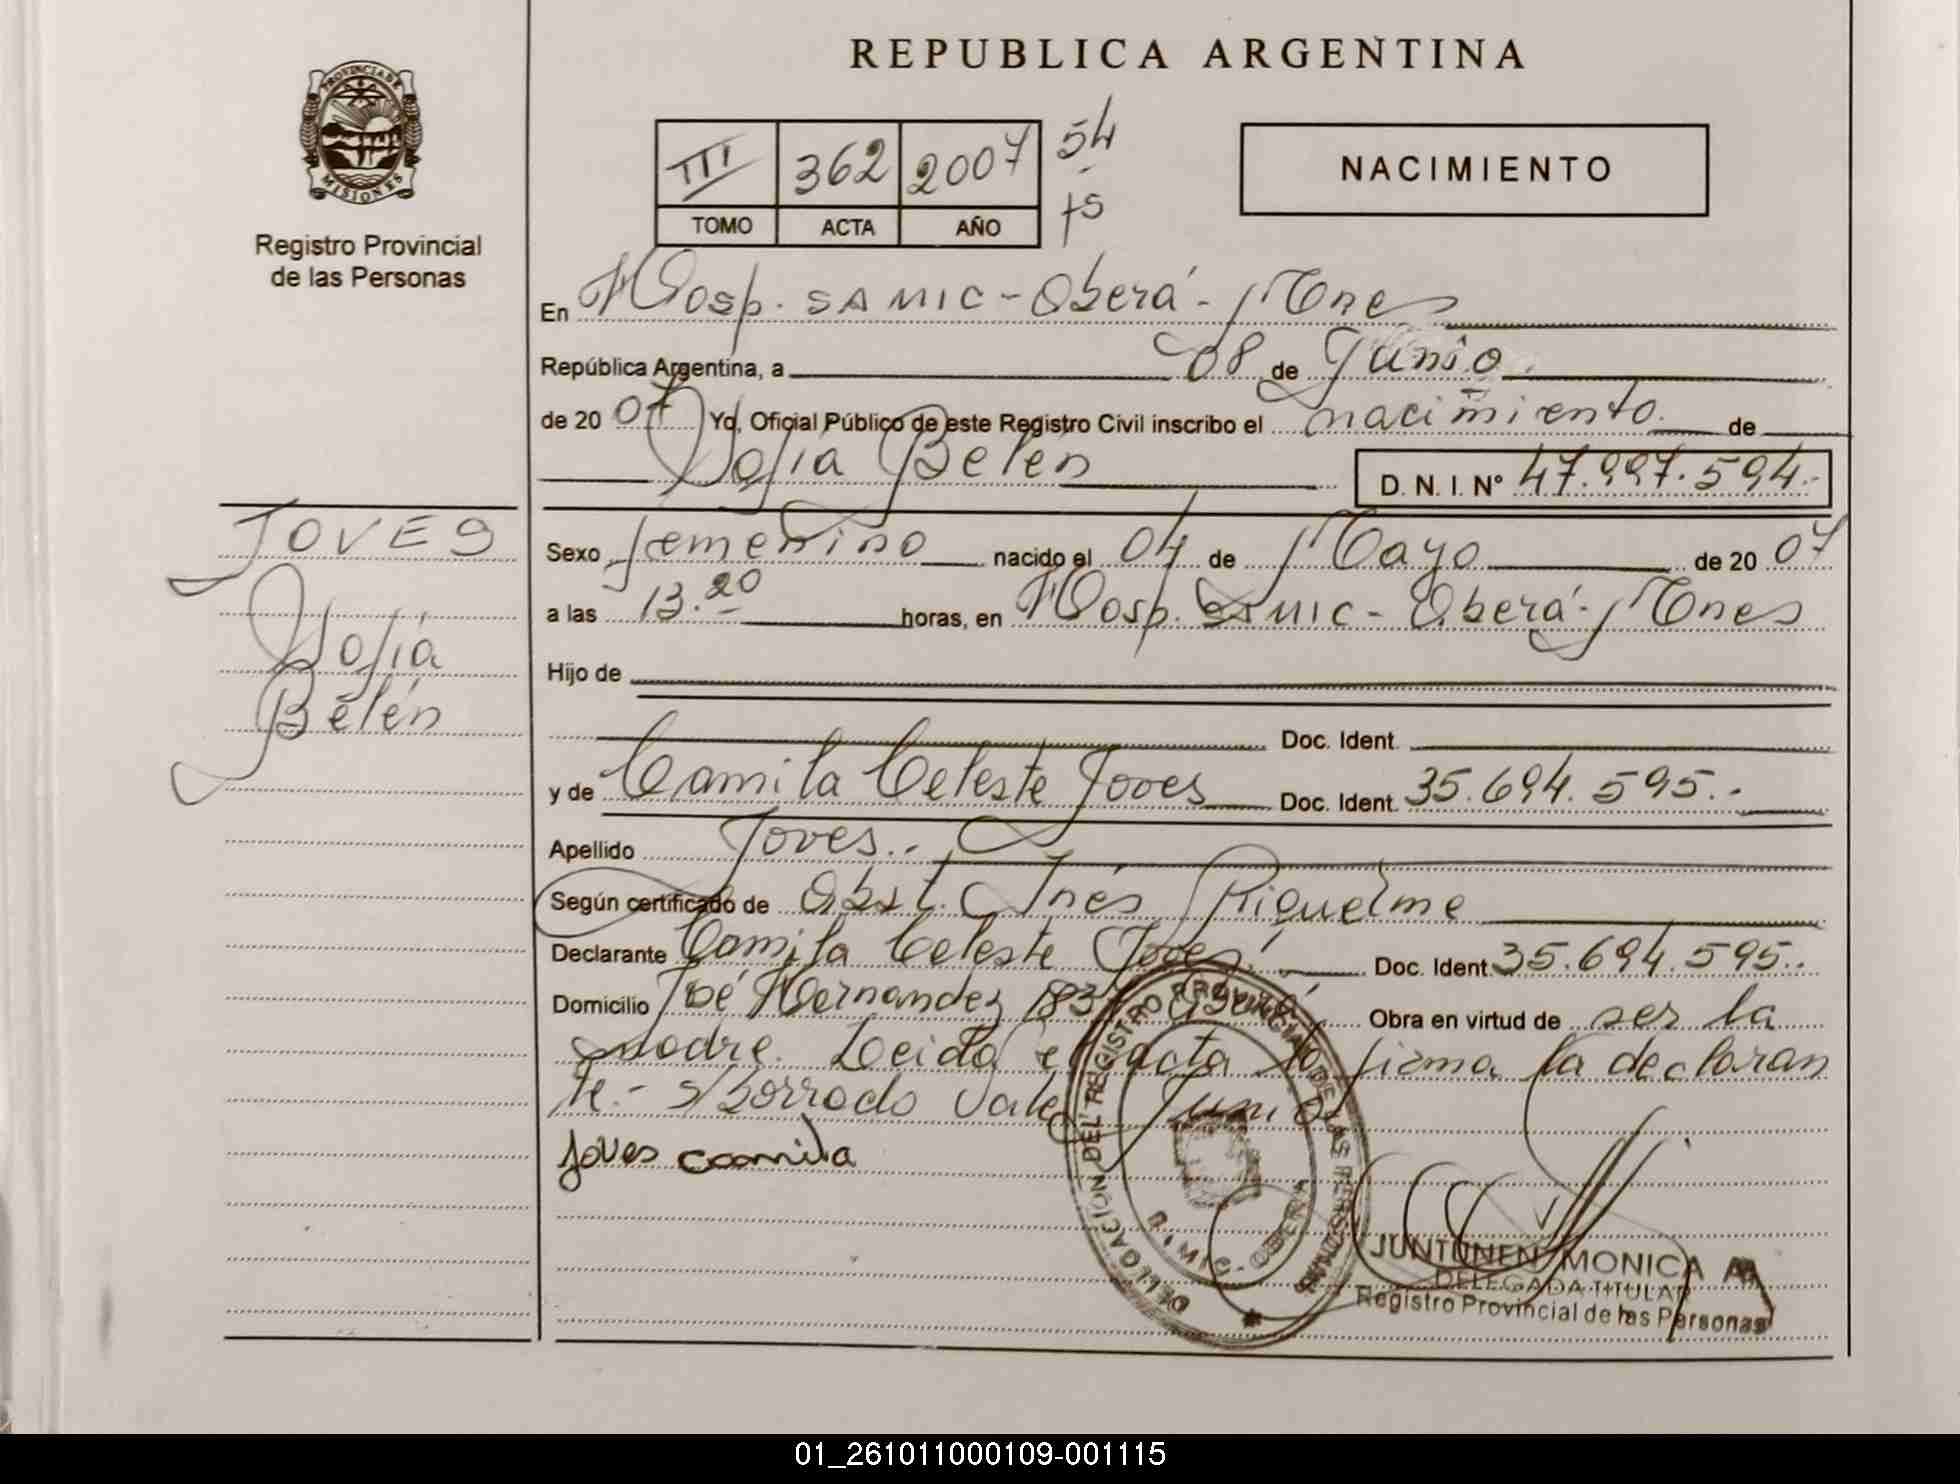 REPUBLICA ARGENTINA
PROVINCIA DE MISIONES
Registro Provincial
de las Personas
III 362 2007 54
TOMO ACTA AÑO
NACIMIENTO
En Hosp. SAMIC - Oberá - Mnes
República Argentina, a 08 de Junio
de 2007 Yo, Oficial Público de este Registro Civil inscribo el nacimiento de
Sofía Belén D. N. I. N° 47.997.594.-
JOVES
Sofía
Belén
Sexo femenino nacido el 04 de Mayo de 2007
a las 13.20 horas, en Hosp. SAMIC - Oberá - Mnes
Hijo de
Doc. Ident.
y de Camila Celeste Joves Doc. Ident. 35.694.595.-
Apellido Joves.-
Según certificado de Obst. Inés Riquelme
Declarante Camila Celeste Joves Doc. Ident. 35.694.595.
Domicilio José Hernandez 1837 Oberá Obra en virtud de ser la
madre. Leida el acta la firma la declaran
te.- s/borrado Vale Junio
Joves camila
DELEGACIÓN DEL REGISTRO PROVINCIAL DE LAS PERSONAS
OBERA
JUNTUNEN MONICA A
DELEGADA TITULAR
Registro Provincial de las Personas
01_261011000109-001115